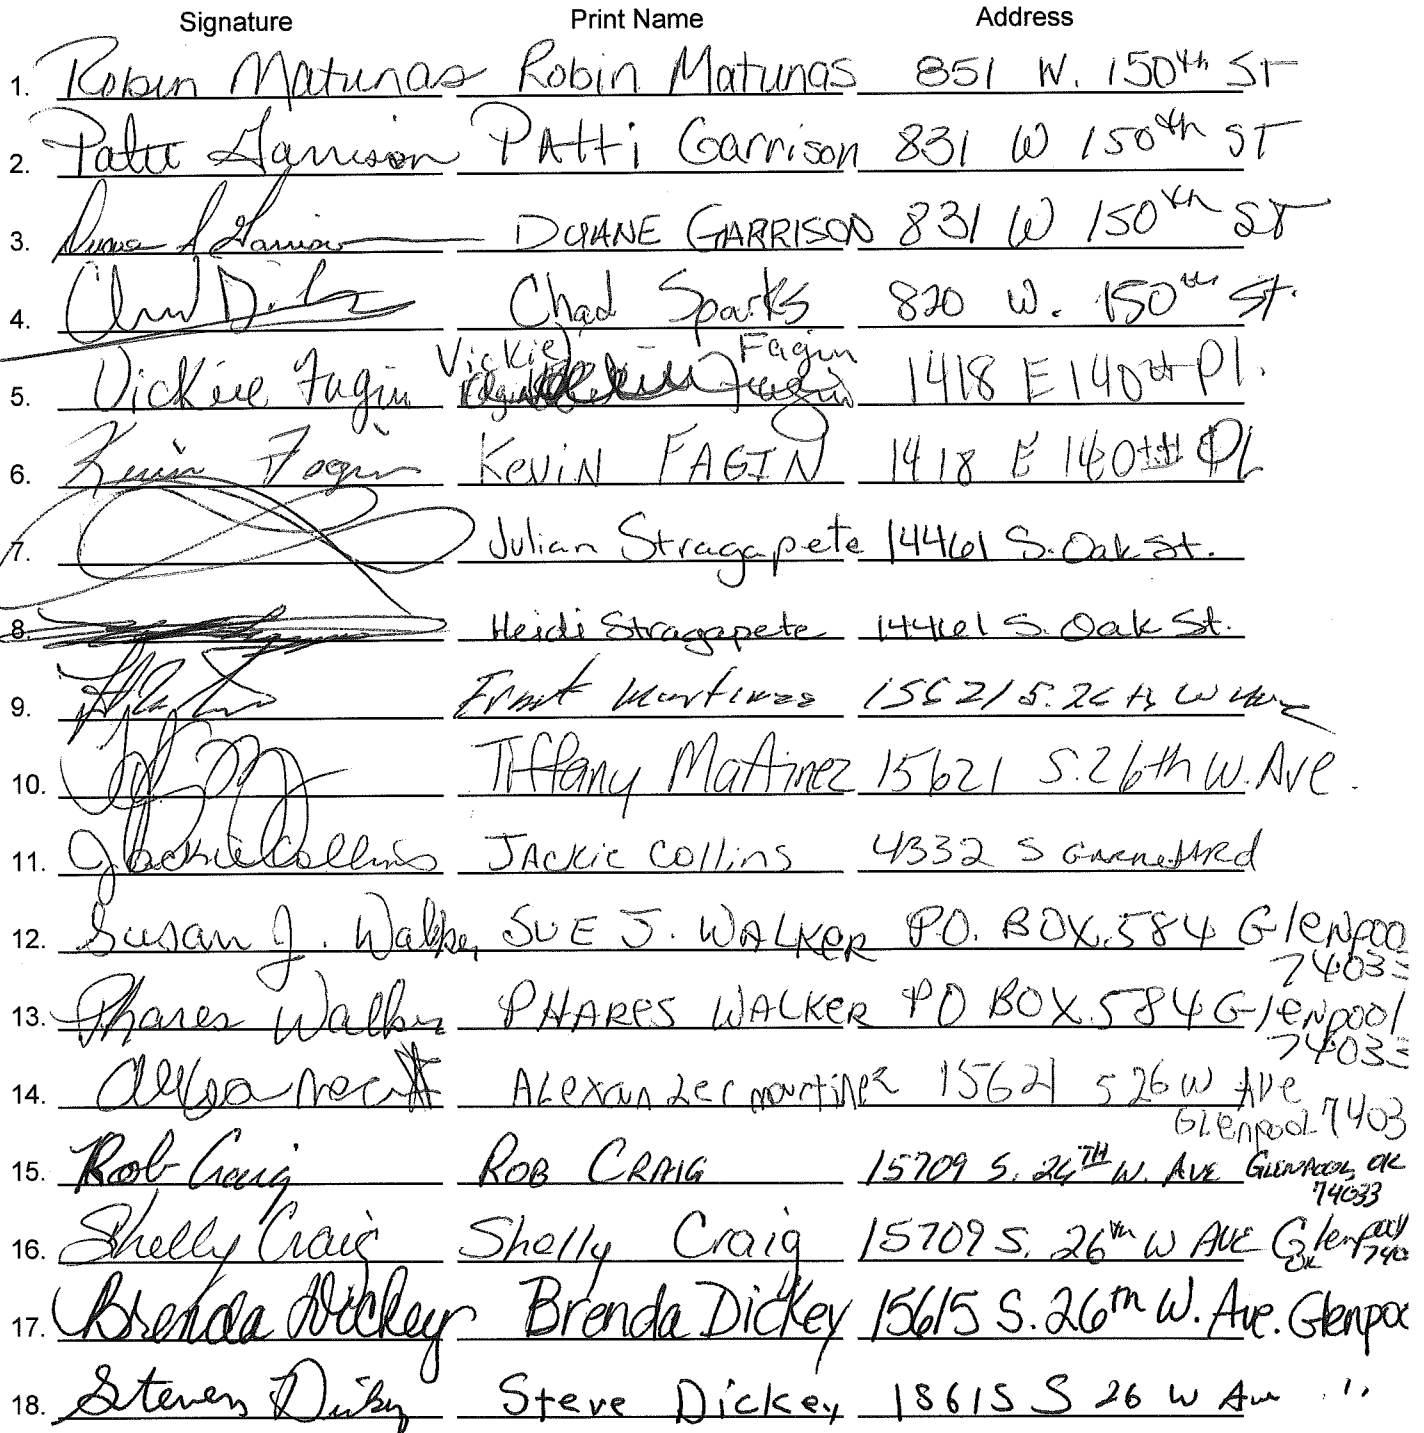 Signature Print Name Address
1. Robin Matunas Robin Matunas 851 W. 150th ST
2. Patti Garrison PAtti Garrison 831 W 150th ST
3. Duane Garrison DUANE GARRISON 831 W 150th ST
4. Chad Sparks 820 W. 150th St.
Vickie Fagin
5. Vickie Fagin Fagin 1418 E 140th Pl.
6. Kevin Fagin KEVIN FAGIN 1418 E 140th PL
7. Julian Stragapete 14461 S. Oak St.
8. Heidi Stragapete 14461 S. Oak St.
9. Martinez 15621 S. 26th W
10. Tiffany Martinez 15621 S. 26th W. Ave.
11. Jackie Collins JAckie Collins 4332 S Garnett Rd
12. Susan J. Walker SUE J. WALKER PO. BOX.584 Glenpoo
7403
13. Phares Walker PHARES WALKER PO BOX.584 Glenpool
7403
14. ALexander martinez 15621 S 26 W AVe
GLenpool 7403
15. Rob Craig ROB CRAIG 15709 S. 26TH W. AVE GLENPOOL, OK
74033
16. Shelly Craig Shelly Craig 15709 S. 26th W AVE Glenpool
OK 740
17. Brenda Dickey Brenda Dickey 15615 S. 26th W. Ave. Glenpoo
18. Steven Dickey Steve Dickey 18615 S 26 W Ave "